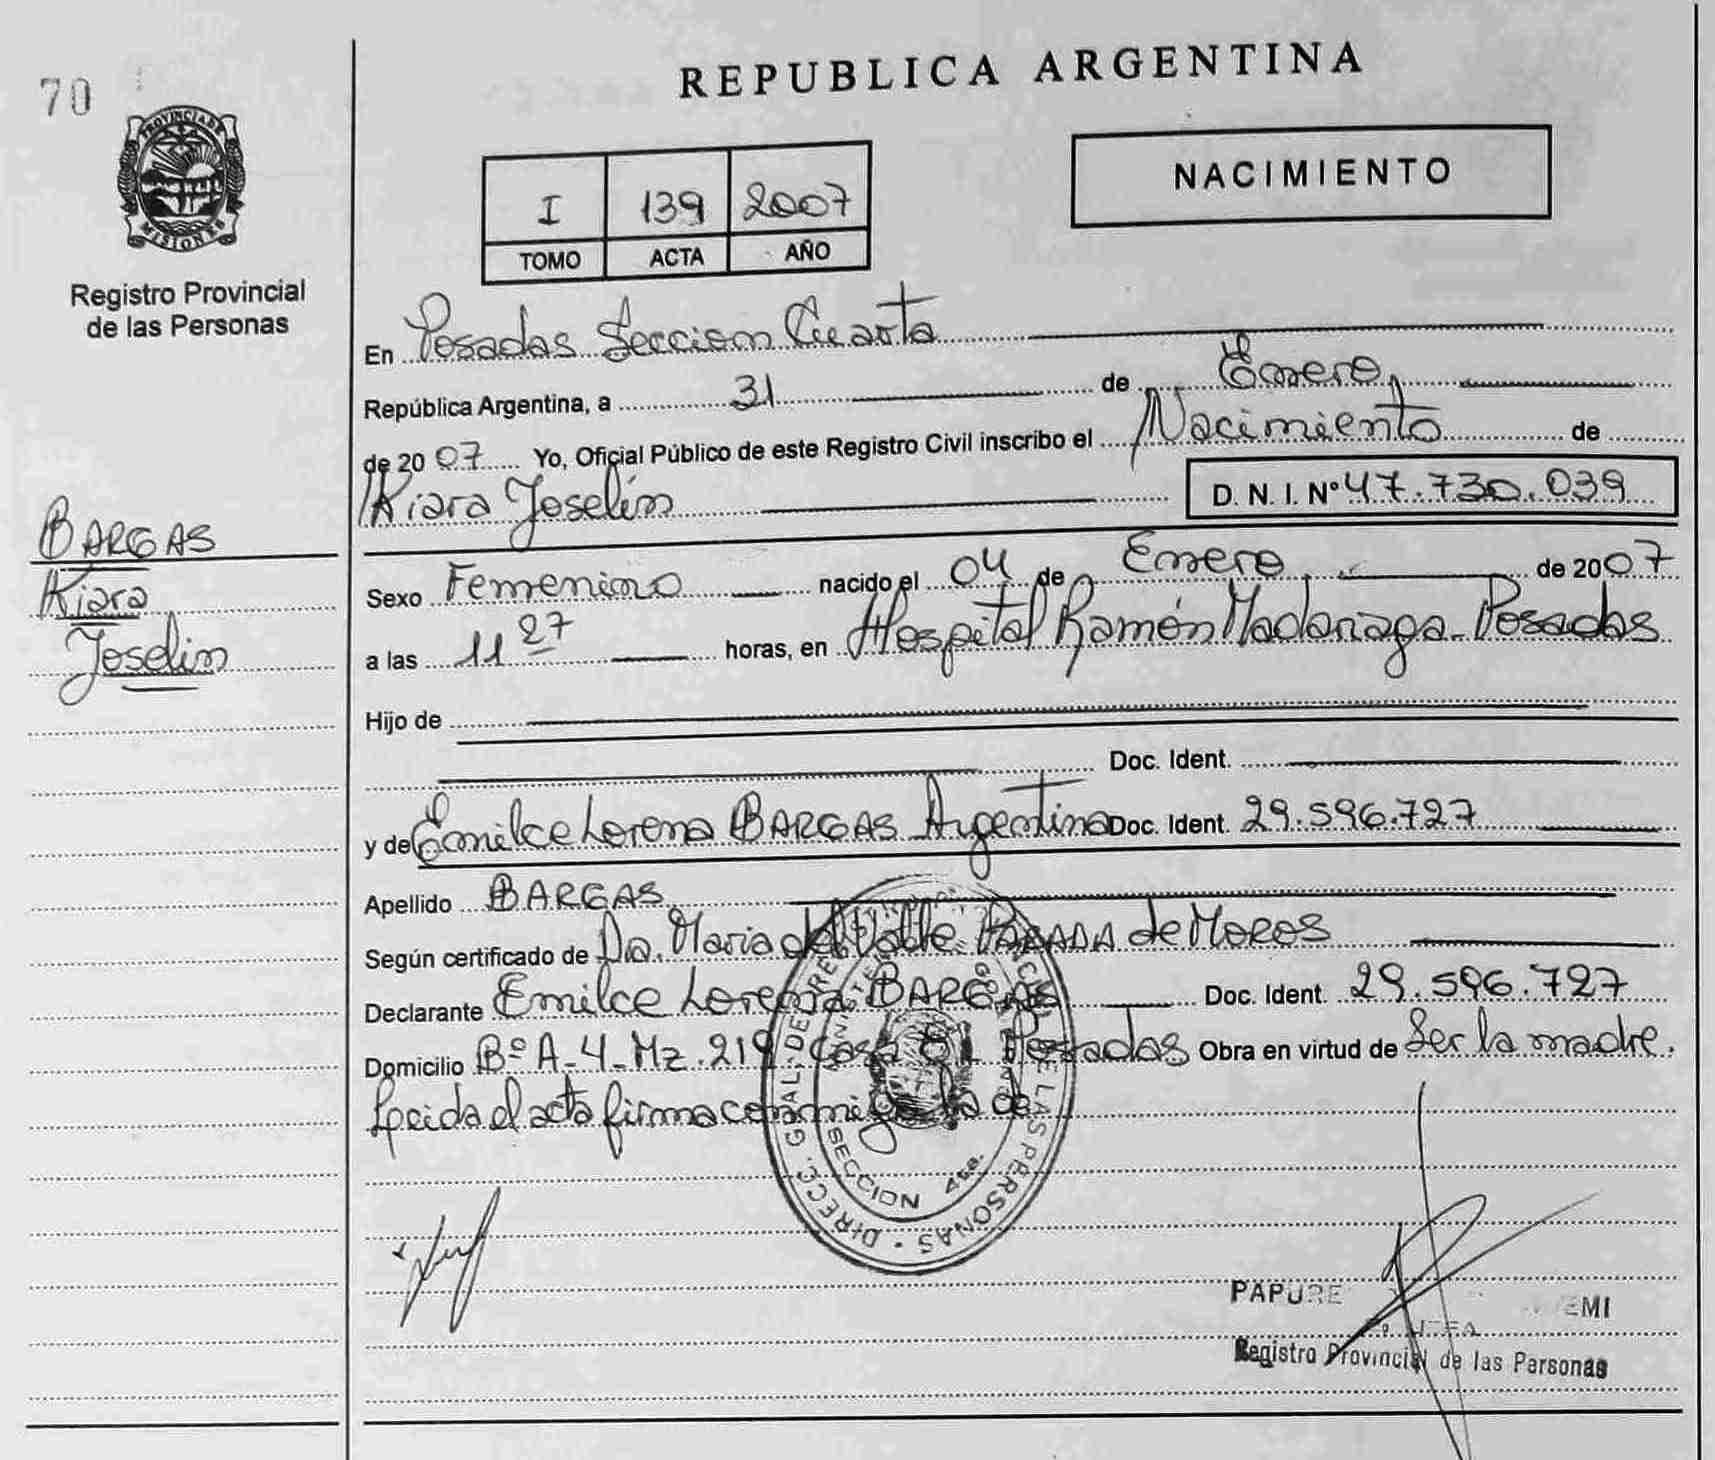 70
PROVINCIA DE
MISIONES
Registro Provincial
de las Personas
REPUBLICA ARGENTINA
I 139 2007
TOMO ACTA AÑO
NACIMIENTO
En Posadas Seccion Cuarta
República Argentina, a 31 de Enero
de 2007 Yo, Oficial Público de este Registro Civil inscribo el Nacimiento de
Kiara Joselin D. N. I. Nº 47.730.039
BARGAS
Kiara
Joselin
Sexo Femenino nacido el 04 de Enero de 2007
a las 11 27 horas, en Hospital Ramón Madariaga - Posadas
Hijo de
Doc. Ident.
y de Emilce Lorena BARGAS Argentina Doc. Ident. 29.596.727
Apellido BARGAS
Según certificado de Dra. Maria del Valle PARADA de Moros
Declarante Emilce Lorena BARGAS Doc. Ident. 29.596.727
Domicilio Bº A-4-Mz. 219 Casa Posadas Obra en virtud de Ser la madre.
Leida el acta firma conmigo la de
DIRECC. GRAL. DE REG. DE LAS PERSONAS
SECCION 4ta.
PAPURE EMI
Registro Provincial de las Personas